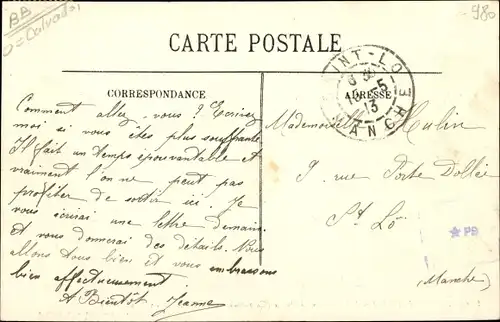 BB
= Calvados
980
CARTE POSTALE
CORRESPONDANCE
ADRESSE
NT-LO
16-5
13
MANCHE
Comment allez vous ? Ecrivez
moi si vous êtes plus souffrante
Il fait un temps épouvantable et
vraiment l'on ne peut pas
profiter de sortir ici. Je
vous écrirai une lettre demain
et vous donnerai des détails. Nous
allons tous bien et vous embrassons
bien affectueusement
A Bientôt. Jeanne
Mademoiselle Hulin
rue Porte Dollée
St Lô
(Manche)
PB